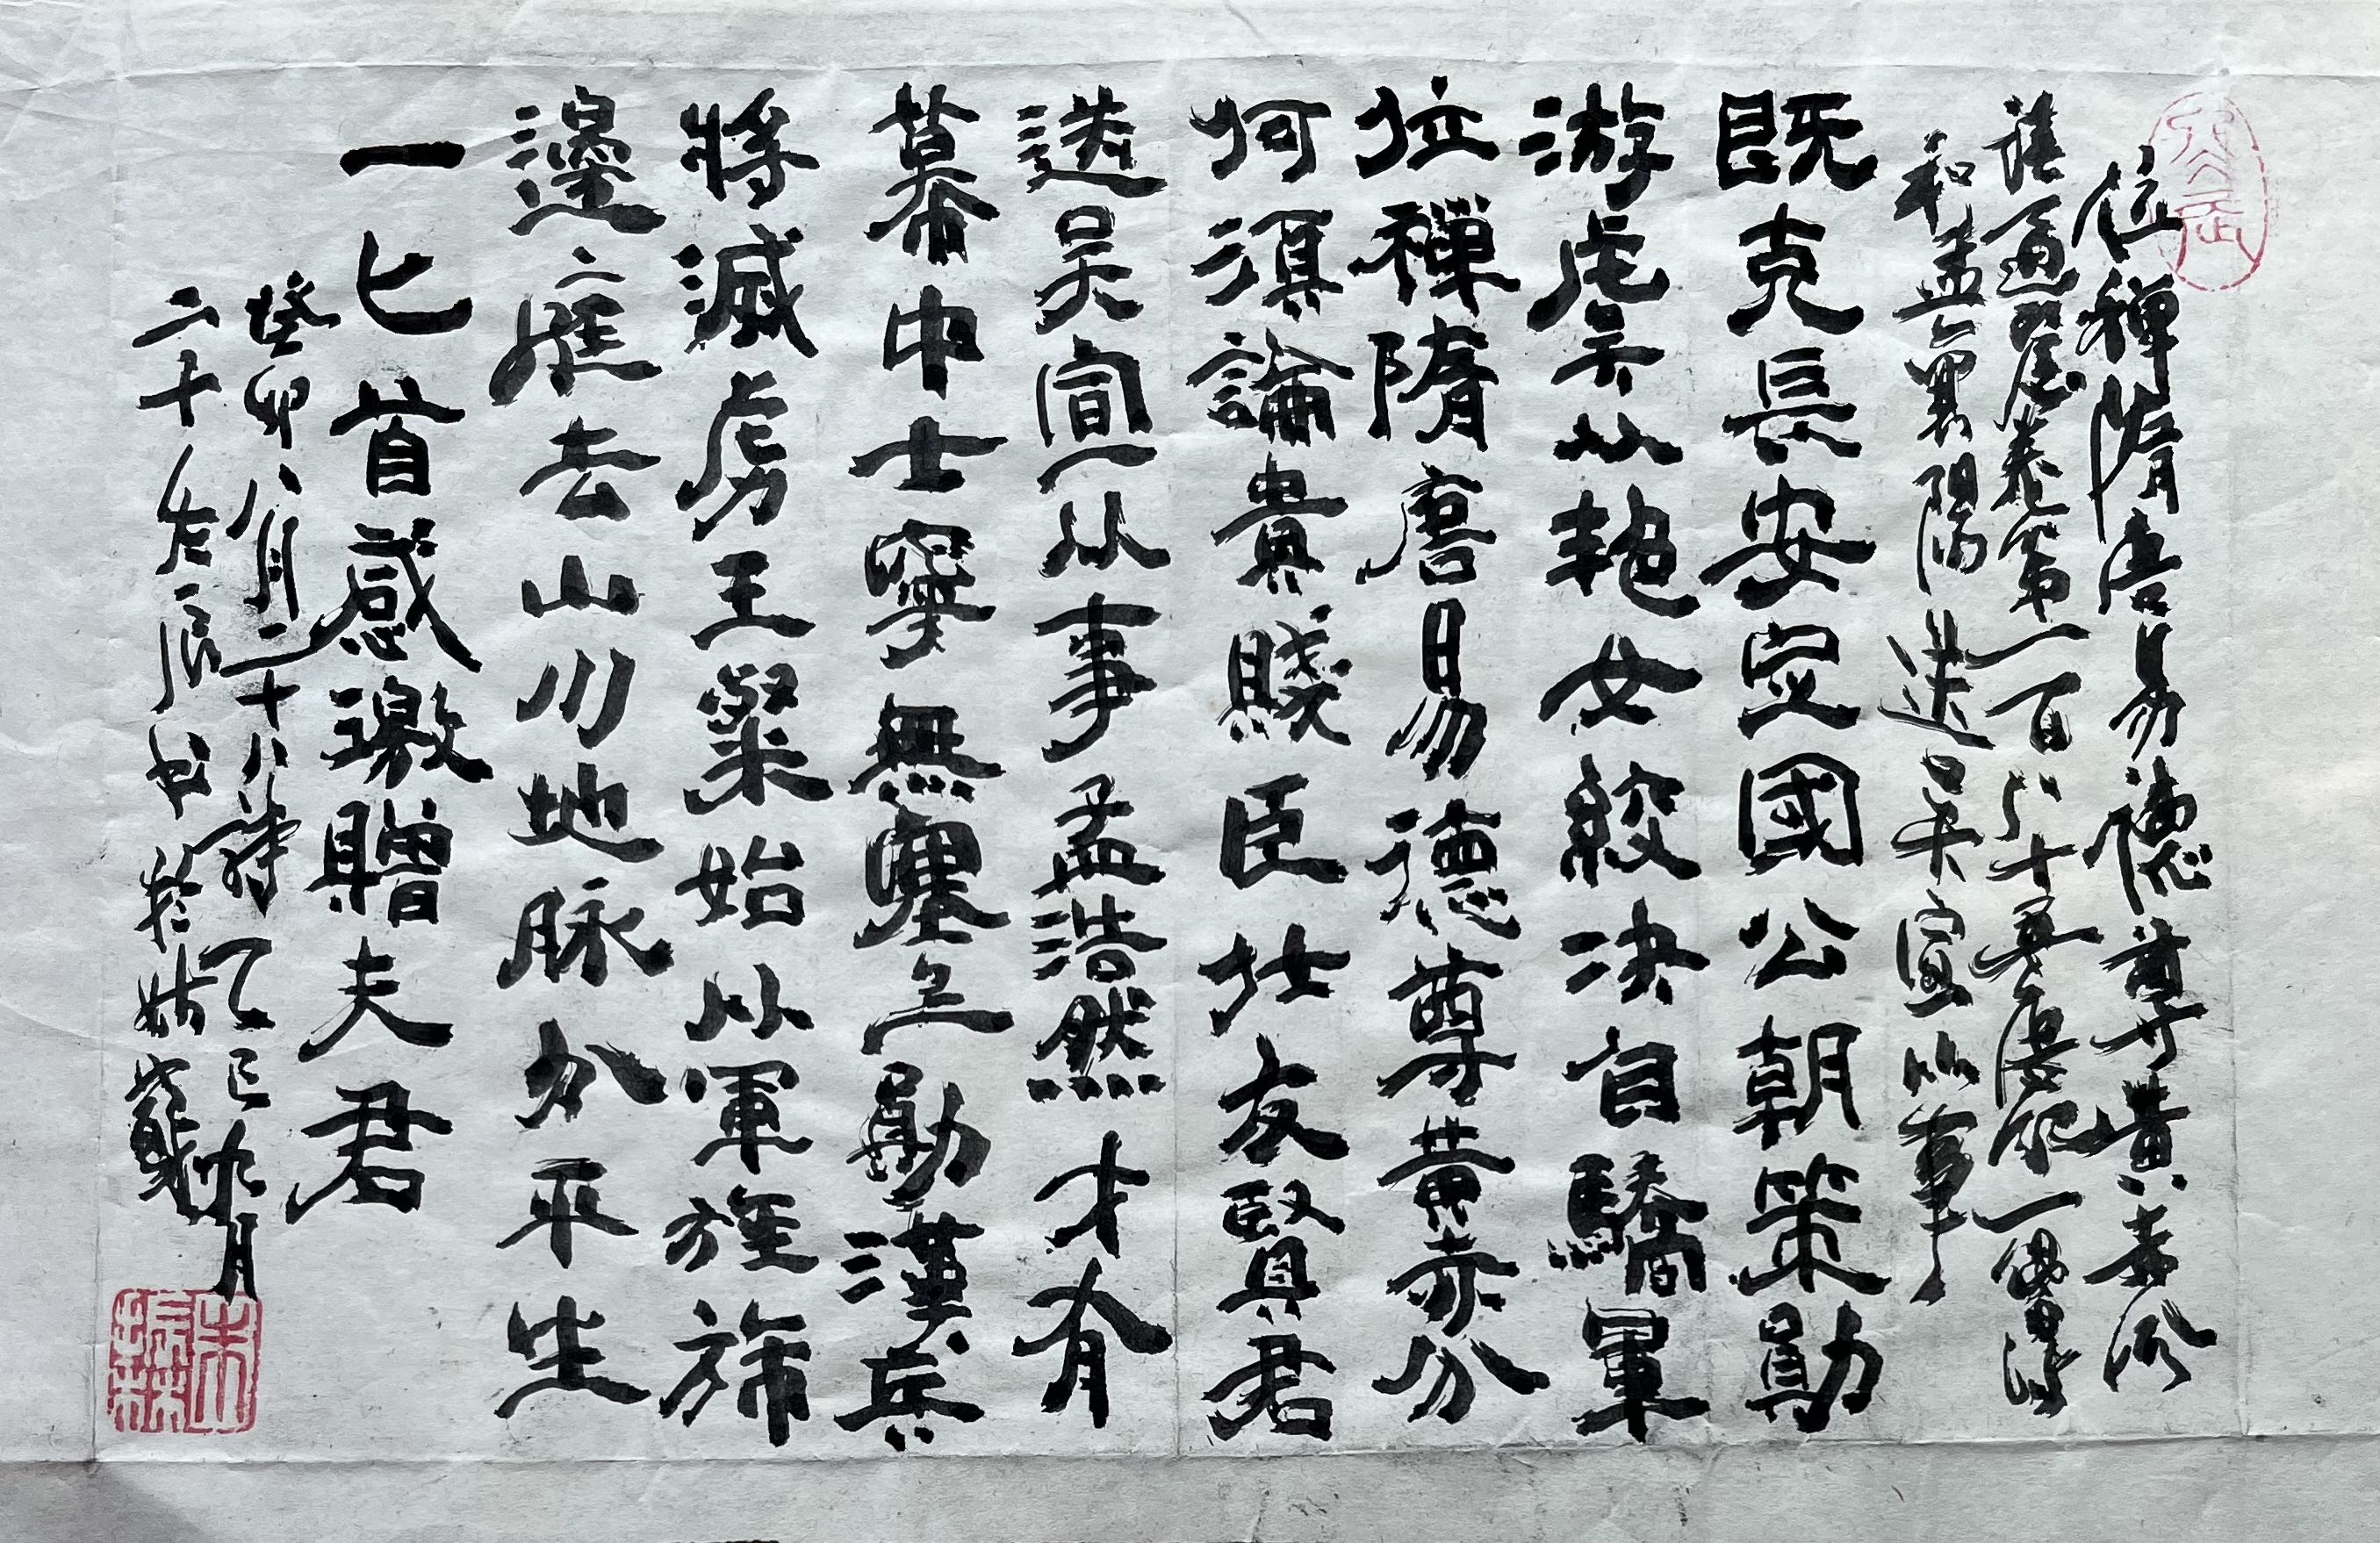 位禪隋唐易德尊黃赤分
讀通鑑卷第一百八十五唐紀一偶得
和孟襄陽送吳宣從事
既克長安定國公朝策勛
游虎吳從艷女絞決自驕軍
位禪隋唐易德尊黃赤分
何須論貴賤臣壯友賢君
送吳宣從事孟浩然才有
幕中士寧無塞上勛漢兵
將滅虜王粲始從軍旌旆
邊庭去山川地脉分平生
一匕首感激贈夫君
癸卯八月二十八詩乙巳九月
二十 辰書於姑蘇